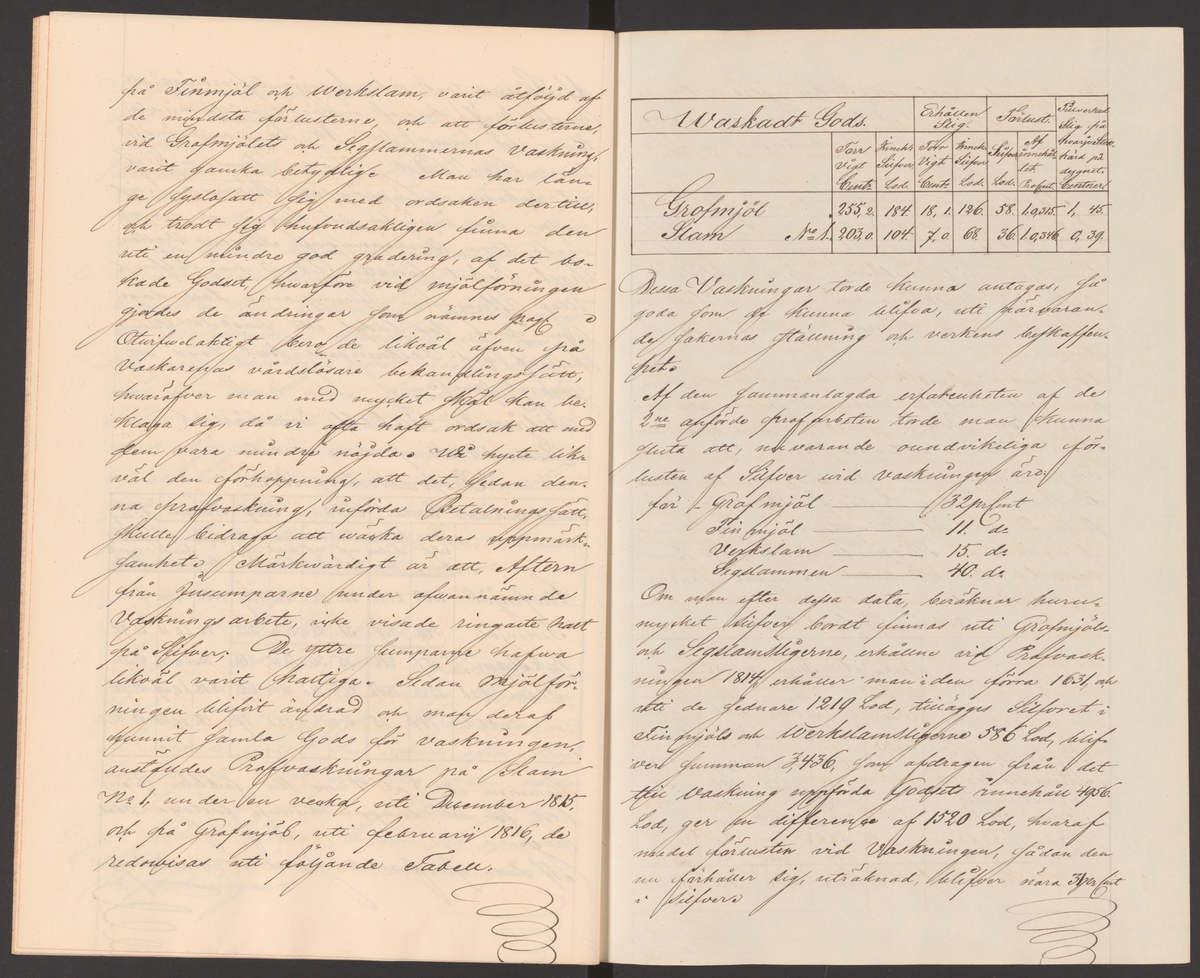 på Finmjöl och Werkslam, varit åtföljd af
de mindsta förlusterne, och att förlusterne,
vid Grofmjölets och Segslammernas Vaskning,
varit ganska betydlige. Man har län-
ge sysslosatt sig med ordsaken dertill,
och trodt sig hufvudsakligen finna den
uti en mindre god gradering, af det bo-
kade Godset, hvarföre vid mjölförningen
gjordes de ändringar som nämnes pag.
Otvifvelaktigt bero de likväl äfven på
Vaskarenas vårdslösare behandlingssätt,
hvaröfver man med mycket skäl kan be-
klaga sig, då vi ofta haft ordsak att med
dem vara mindre nöjda. Wi hyste lik-
väl den förhoppning, att det, sedan den-
na profvaskning, införda Betalningssätt,
skulle bidraga att wäcka deras uppmärk-
samhet. Märkwärdigt är att, Aftern
från under ofwannämnde
Vaskningsarbete, icke visade ringaste halt
på Silfver; De yttre sumparne hafwa
likväl varit haltiga. Sedan Mjölför-
ningen blifvit ändrad och man deraf
hunnit samla Gods för vaskningen,
anställdes Profvaskningar på Slam
No 1, under en vecka, uti December 1815,
och på Grofmjöl, uti februarij 1816, de
redowisas uti följande Tabell.
Waskadt Gods. Erhållen Slig. Förlust. Tillverkad Slig på hvarje Stöthärd på dygnet.
Torr Vigt Innehåll Silfver Torr Vigt Inneh. Silfver Silfver Af innehållet.
Centr Lod. Centr. Lod. Lod. Procent. Centner
Grofmjöl 255,2. 184. 18,1. 126. 58. 1.0,315. 1,45.
Slam No 1. 203,0. 104. 7,0. 68. 36. 1.0,346 0,39.
Dessa Vaskningar torde kunna antagas, så
goda som de kunna blifva, uti närvaran-
de sakernas ställning och verkens beskaffen-
het.
Af den sammanlagda erfarenheten af de
2ne anförde profarbeten torde man kunna
sluta att, nuvarande oundvikeliga för-
lusten af Silfver wid vaskningen är:
för - Grofmjöl — 32 procent
Finmjöl — 11. do
Verkslam — 15. do
Segslammen — 40. do
Om man efter dessa data, beräknar huru-
mycket Silfver bordt finnas uti Grofmjöls-
och Segslamsligerne, erhållne vid Profvask-
ningen 1814, erhåller man i den förra 1631, och
uti de sednare 1219 Lod, tillägges Silfvret i
Finmjöls och Werkslamsligerne 586 Lod, blif-
ver summan 3,436, som afdragen från det
till Vaskning uppförda Godsets innehåll 4956
Lod, ger en difference af 1520 Lod, hvaraf
medel förlusten vid Vaskningen, sådan den
nu förhåller sig, uträknad, blifver nära 31 procent
i Silfver.